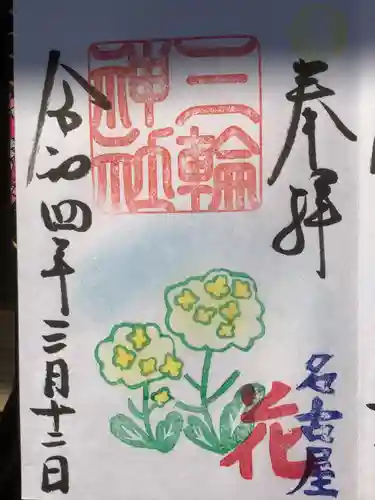 奉拝
三輪
神社
名古屋
花
令和四年三月十二日